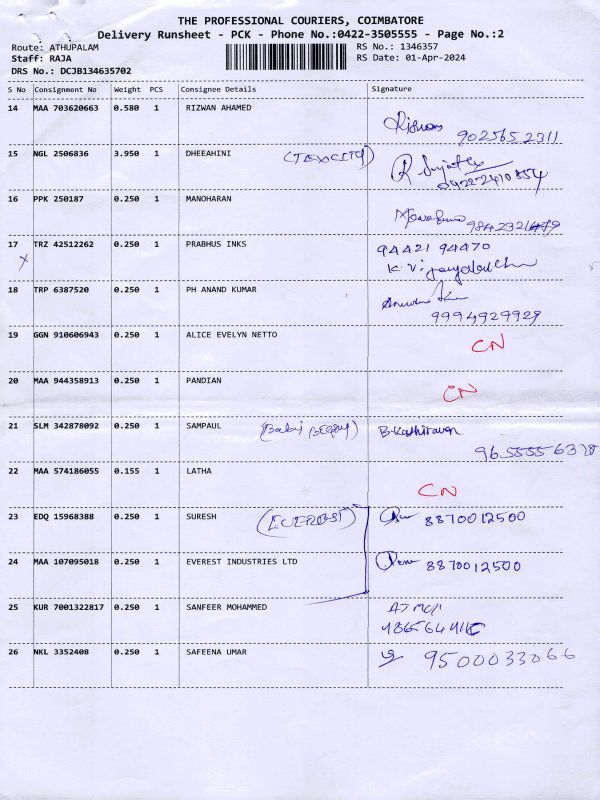 THE PROFESSIONAL COURIERS, COIMBATORE
Delivery Runsheet - PCK - Phone No.:0422-3505555 - Page No.:2
Route: ATHUPALAM
RS No.: 1346357
Staff: RAJA
RS Date: 01-Apr-2024
DRS No.: DCJB134635702
S No Consignment No Weight PCS Consignee Details Signature
14 MAA 703620663 0.580 1 RIZWAN AHAMED
9025652311
15 NGL 2506836 3.950 1 DHEEAHINI (TEXCITY)
16 PPK 250187 0.250 1 MANOHARAN
17 TRZ 42512262 0.250 1 PRABHUS INKS 94421 94470
X
18 TRP 6387520 0.250 1 PH ANAND KUMAR
9994929929
19 GGN 910606943 0.250 1 ALICE EVELYN NETTO CN
20 MAA 944358913 0.250 1 PANDIAN CN
21 SLM 342878092 0.250 1 SAMPAUL B.Kathiravan
22 MAA 574186055 0.155 1 LATHA CN
23 EDQ 15968388 0.250 1 SURESH (EVEREST) 8870012500
24 MAA 107095018 0.250 1 EVEREST INDUSTRIES LTD 8870012500
25 KUR 7001322817 0.250 1 SANFEER MOHAMMED
26 NKL 3352408 0.250 1 SAFEENA UMAR 9500033066